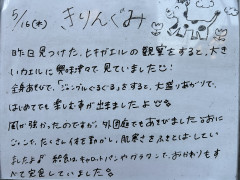 5/16(木) きりんぐみ
昨日見つけた、ヒキガエルの観察をすると、大き
いカエルに興味津々で見ていました☺!
全身あそびで、「ジャングルぐるぐる」をすると、大盛りあがりで、
はじめてでも楽しむ事が出来ましたよ
風が強かったのですが、外国庭でもあそびました
こいで、たくさん体を動かし、肌寒さをふきとばしてい
ましたよ 給食はキャロットパンやグラタンで、おかわりもす
べて完食していました